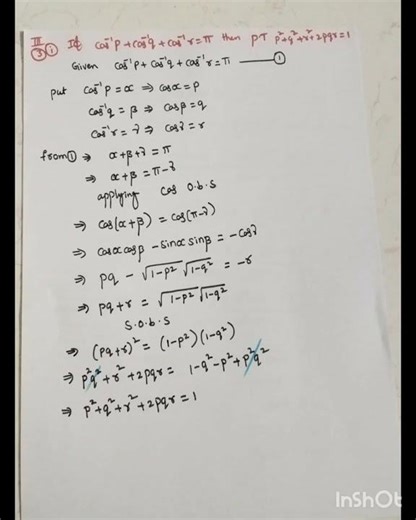 III
3 i If cos⁻¹p + cos⁻¹q + cos⁻¹r = π then P.T p² + q² + r² + 2pqr = 1
Given cos⁻¹p + cos⁻¹q + cos⁻¹r = π — 1
put cos⁻¹p = α ⇒ cosα = p
cos⁻¹q = β ⇒ cosβ = q
cos⁻¹r = γ ⇒ cosγ = r
from 1 ⇒ α + β + γ = π
⇒ α + β = π - γ
applying cos O.b.s
⇒ cos(α + β) = cos(π - γ)
⇒ cosα cosβ - sinα sinβ = - cosγ
⇒ pq - √1-p² √1-q² = -r
⇒ pq + r = √1-p² √1-q²
S.O.b.s
⇒ (pq + r)² = (1-p²)(1-q²)
⇒ p²q² + r² + 2pqr = 1 - q² - p² + p²q²
⇒ p² + q² + r² + 2pqr = 1
InShOt